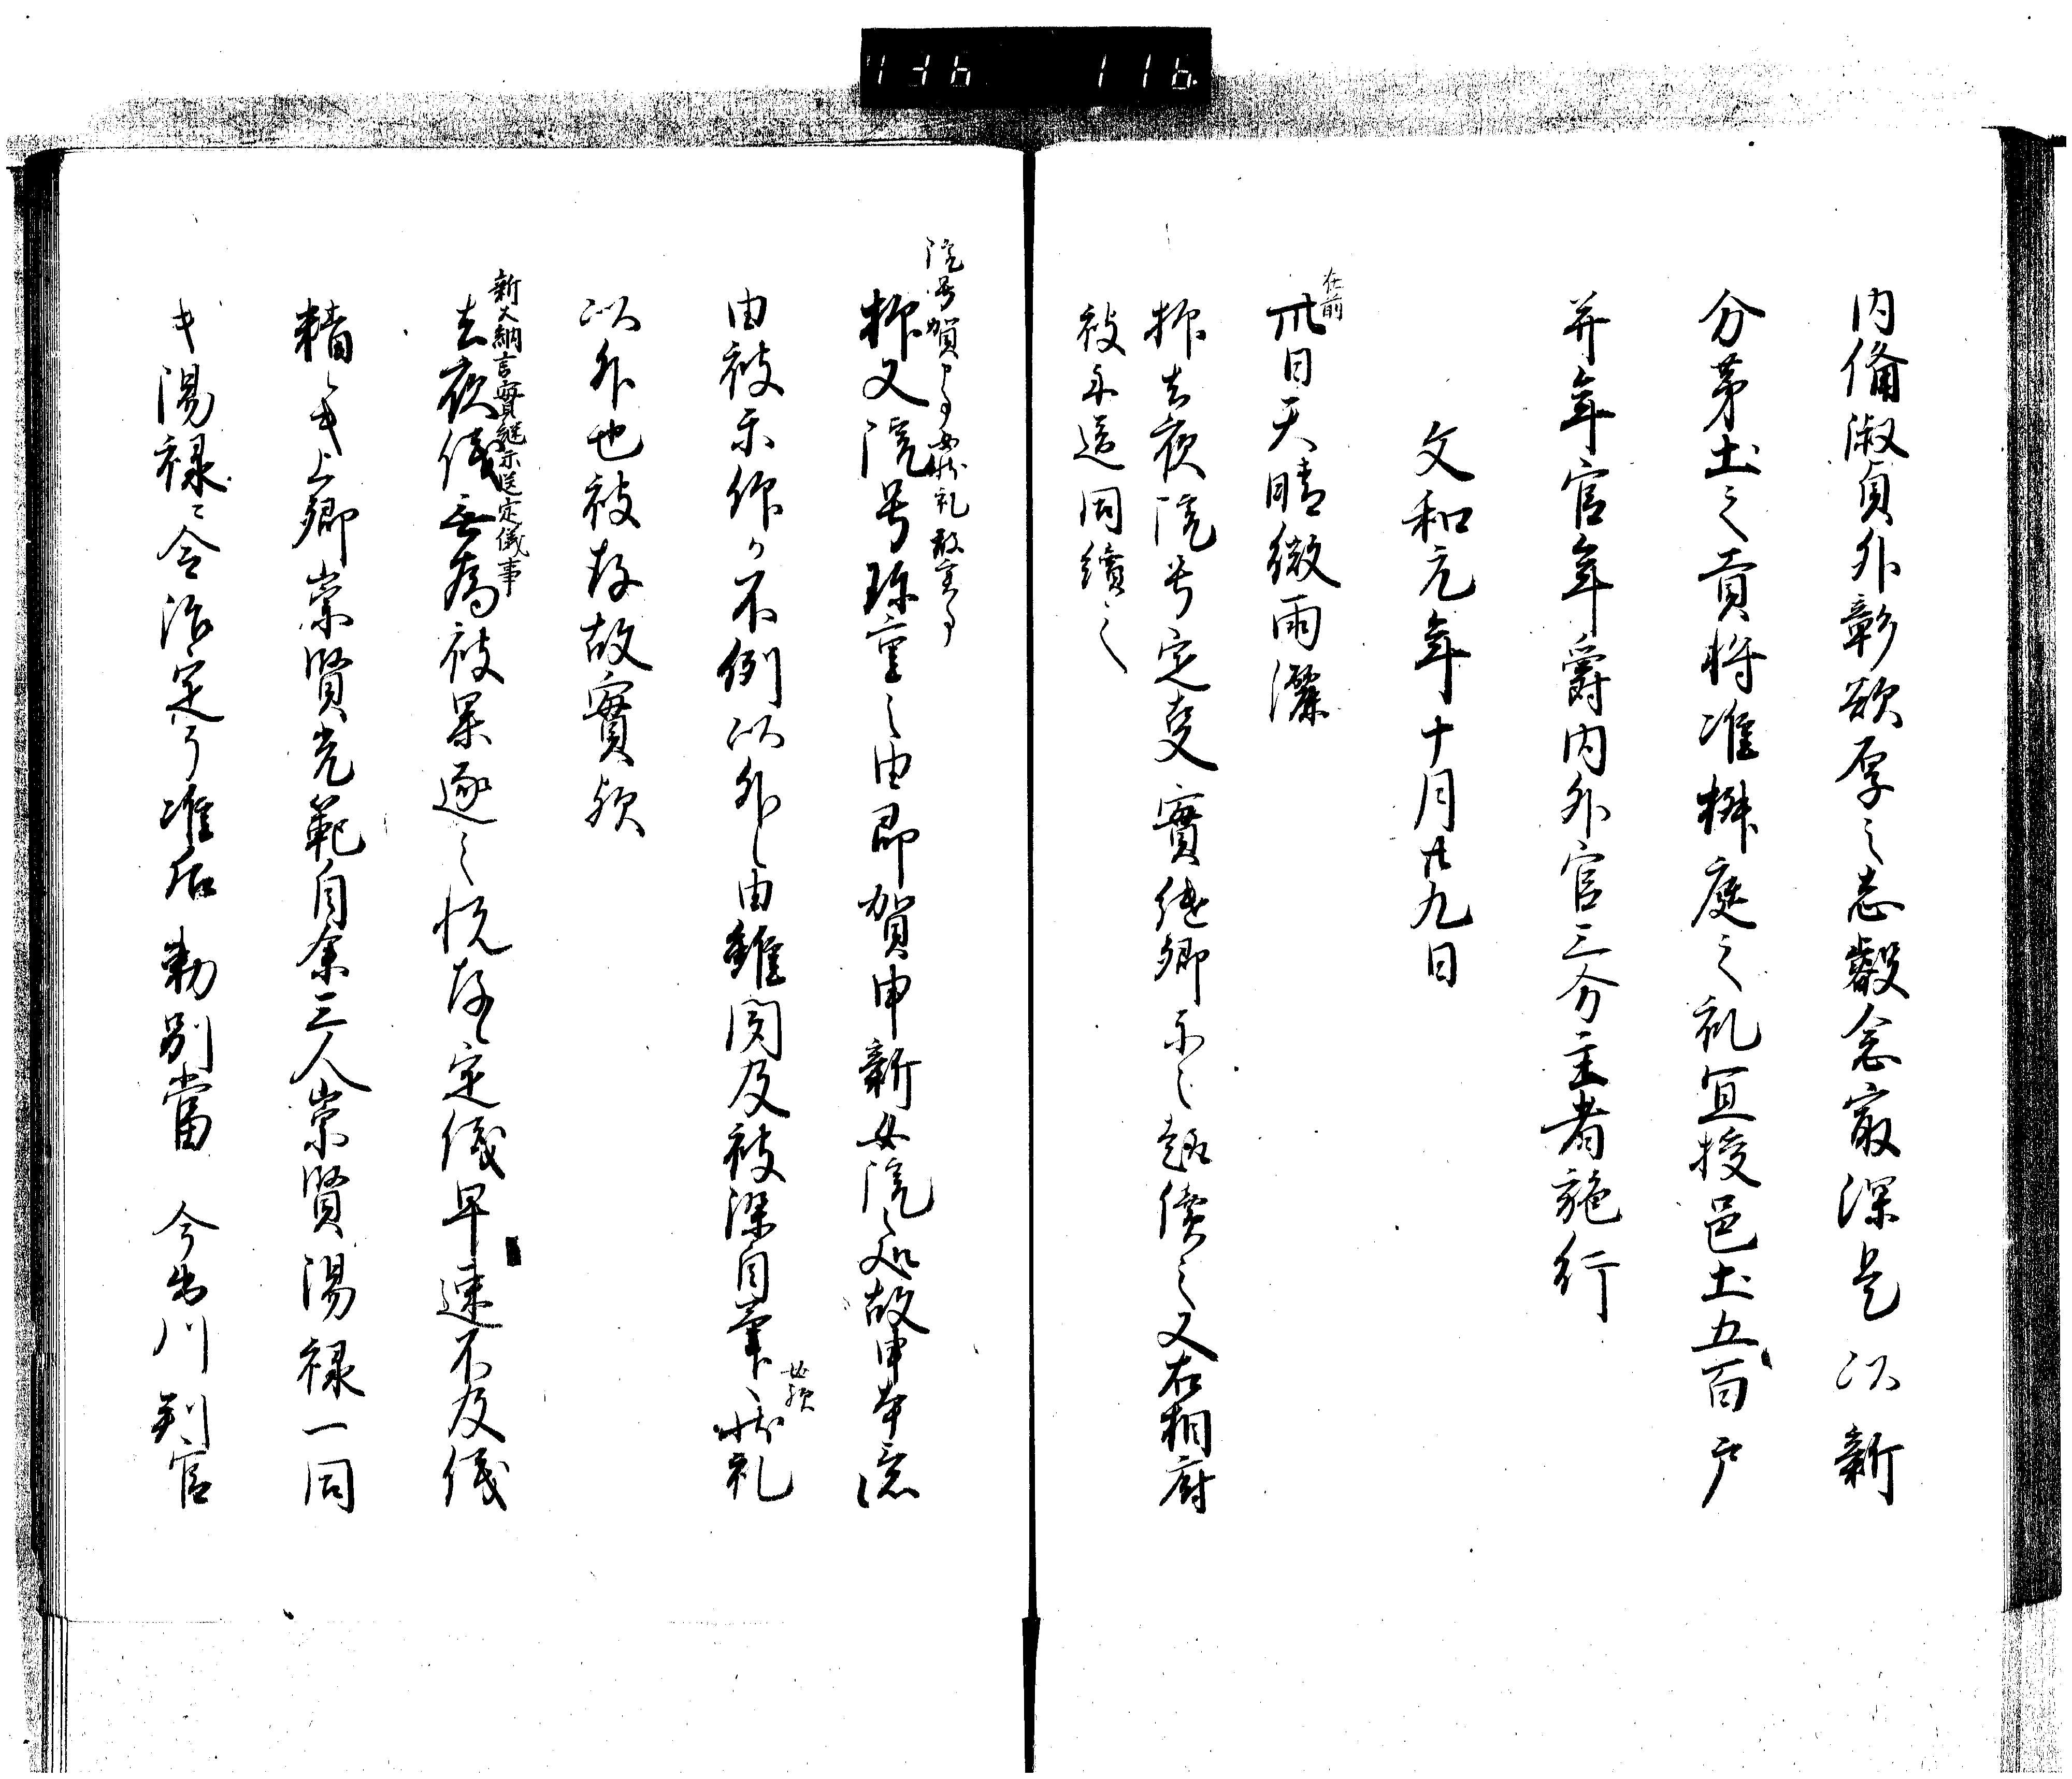 136 116
内備淑貞外彰欲厚之志叡念最深是以新
分茅土之貢将准掖庭之礼宜授邑土五百戸
并年官年爵内外官三分主者施行
文和元年十月廿九日
在前
卅日天晴微雨灑
抑去夜院号定支實継卿示之趣続之又右相府
被示送同続之
院号賀申事女状礼故實事
抑又院号珍重之由即賀申新女院之処故申本意
由被示作不例以外之由雖聞及被染自筆状礼
女歟
以外也被存故實歟
新大納言實継示送定儀事
去夜儀無為被果遂之悦存之定儀早速不及儀
精之上卿崇賢光範自余三人崇賢陽禄一同
陽禄之令治定了准后勅別當 今出川判官